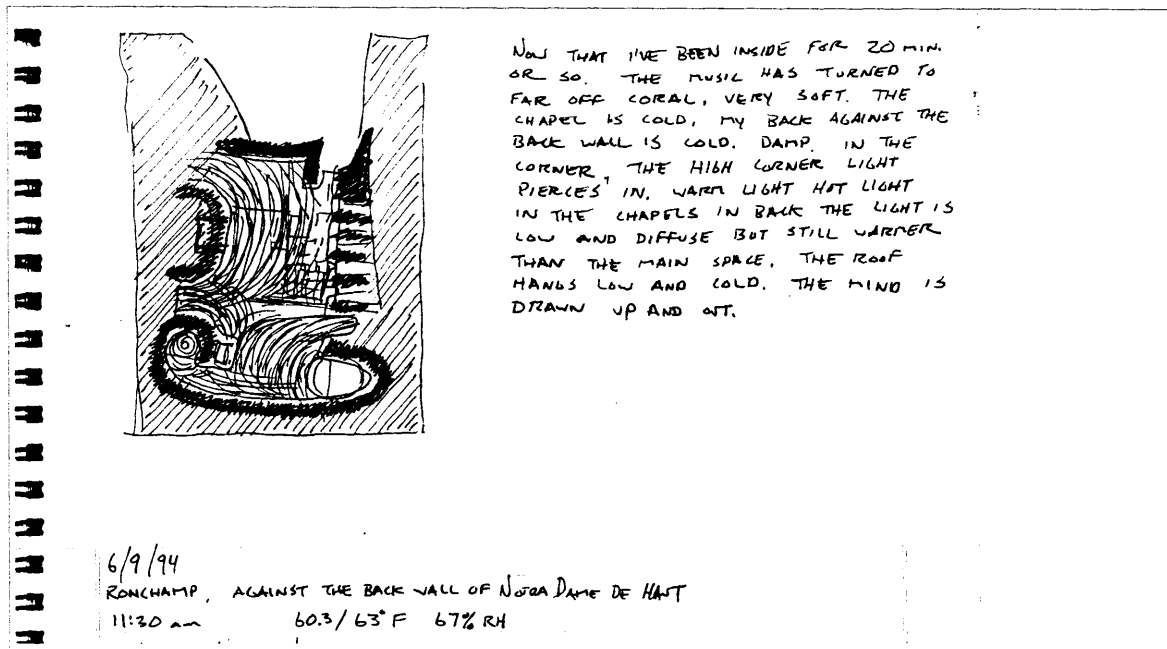 NOW THAT I'VE BEEN INSIDE FOR 20 MIN.
OR SO. THE MUSIC HAS TURNED TO
FAR OFF CORAL, VERY SOFT. THE
CHAPEL IS COLD, MY BACK AGAINST THE
BACK WALL IS COLD. DAMP. IN THE
CORNER, THE HIGH CORNER LIGHT
PIERCES IN. WARM LIGHT HOT LIGHT
IN THE CHAPELS IN BACK THE LIGHT IS
LOW AND DIFFUSE BUT STILL WARMER
THAN THE MAIN SPACE. THE ROOF
HANGS LOW AND COLD. THE MIND IS
DRAWN UP AND OUT.
6/9/94
RONCHAMP, AGAINST THE BACK WALL OF NOTRA DAME DE HAUT
11:30 am 60.3/63°F 67% RH